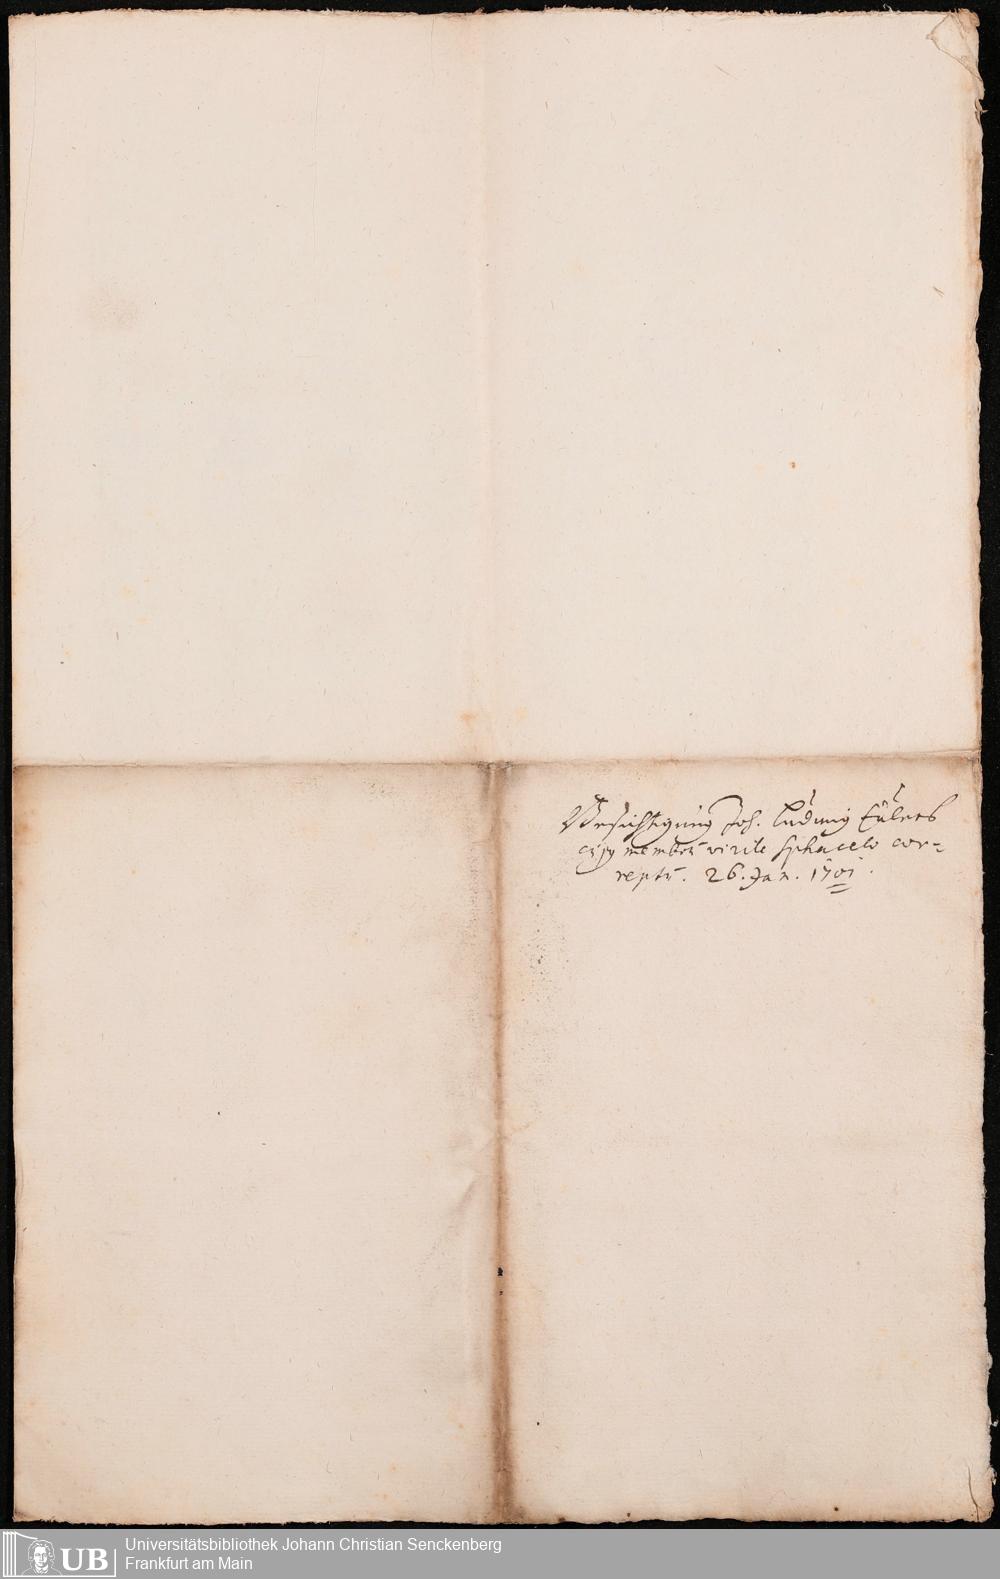 Besichtigung Joh. Ludwig Eulers
cujq membrū virile sphacelo cor-
reptū. 26. Jan. 1701.
UB
Universitätsbibliothek Johann Christian Senckenberg
Frankfurt am Main